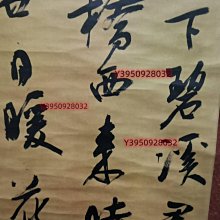 下碧溪
橋西来時
日暖花
Y3950928032
Y3950928032
Y3950928032